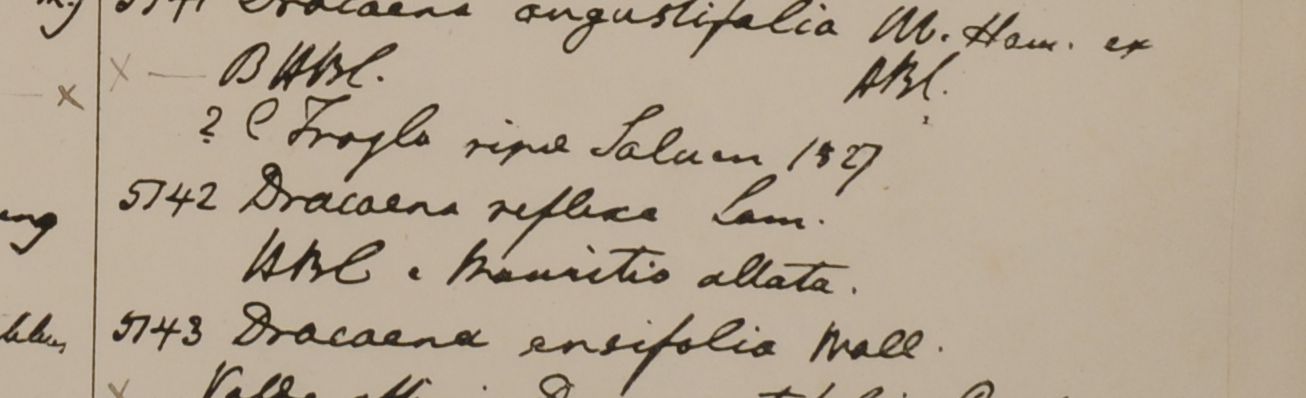 5141 Dracaena angustifolia M. Ham. ex
× — B HBC. HBC.
× ? C Trogla ripæ Saluen 1827
5142 Dracaena reflexa Lam.
HBC e Mauritio allata.
5143 Dracaena ensifolia Wall.